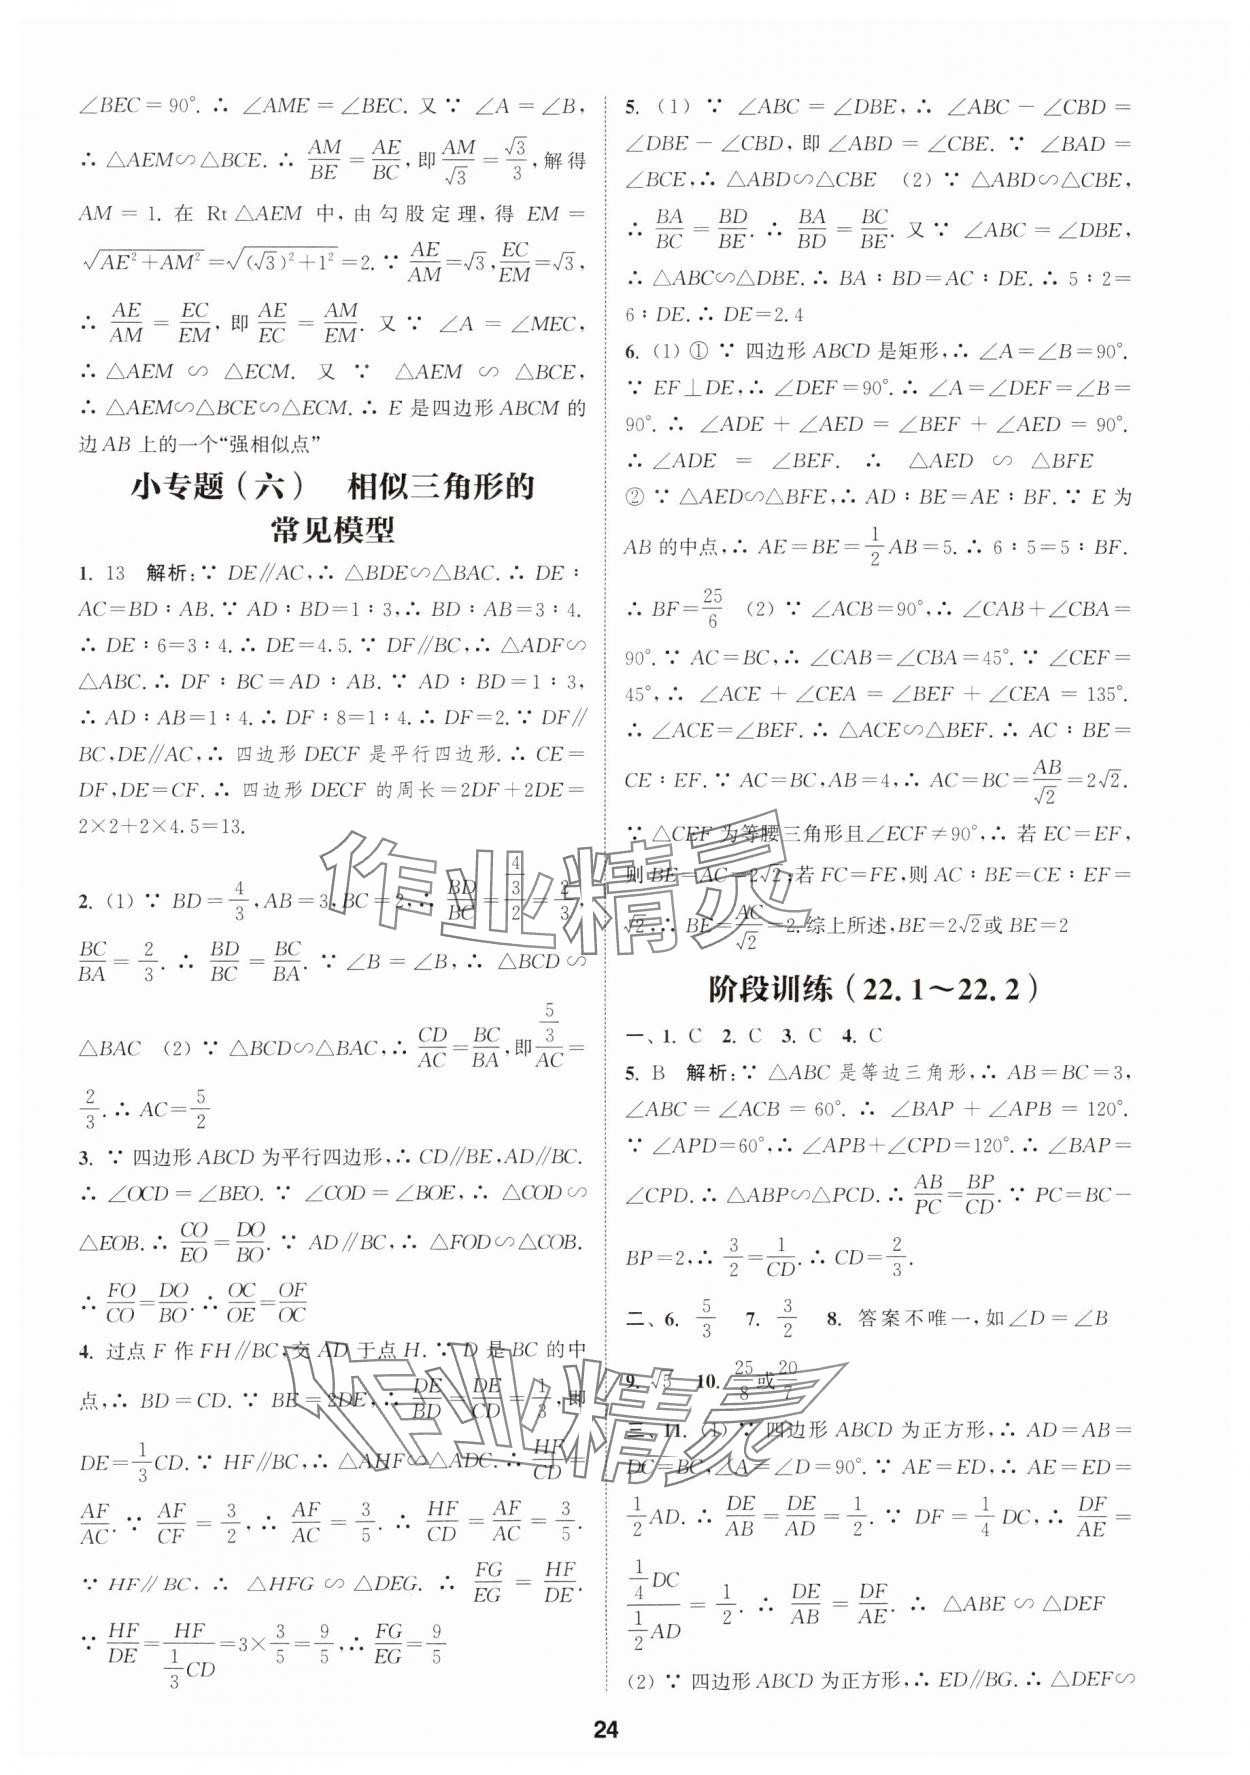 ∠BEC=90°.∴ ∠AME=∠BEC.又∵ ∠A=∠B,
∴ △AEM∽△BCE.∴ AM/BE=AE/BC,即AM/√3=√3/3,解得
AM=1.在 Rt△AEM 中,由勾股定理,得 EM=
√(AE²+AM²)=√((√3)²+1²)=2.∵ AE/AM=√3,EC/EM=√3,
∴ AE/AM=EC/EM,即AE/EC=AM/EM.又∵ ∠A=∠MEC,
∴ △AEM∽△ECM.又∵ △AEM∽△BCE,
∴ △AEM∽△BCE∽△ECM.∴ E 是四边形 ABCM 的
边 AB 上的一个“强相似点”
小专题(六) 相似三角形的
常见模型
1. 13 解析:∵ DE∥AC,∴ △BDE∽△BAC.∴ DE∶
AC=BD∶AB.∵ AD∶BD=1∶3,∴ BD∶AB=3∶4.
∴ DE∶6=3∶4.∴ DE=4.5.∵ DF∥BC,∴ △ADF∽
△ABC.∴ DF∶BC=AD∶AB.∵ AD∶BD=1∶3,
∴ AD∶AB=1∶4.∴ DF∶8=1∶4.∴ DF=2.∵ DF∥
BC,DE∥AC,∴ 四边形 DECF 是平行四边形.∴ CE=
DF,DE=CF.∴ 四边形 DECF 的周长=2DF+2DE=
2×2+2×4.5=13.
2. (1) ∵ BD=4/3,AB=3,BC=2,∴ BD/BC=(4/3)/2=2/3,
BC/BA=2/3.∴ BD/BC=BC/BA.∵ ∠B=∠B,∴ △BCD∽
△BAC (2) ∵ △BCD∽△BAC,∴ CD/AC=BC/BA,即(5/3)/AC=
2/3.∴ AC=5/2
3. ∵ 四边形 ABCD 为平行四边形,∴ CD∥BE,AD∥BC.
∴ ∠OCD=∠BEO.∵ ∠COD=∠BOE,∴ △COD∽
△EOB.∴ CO/EO=DO/BO.∵ AD∥BC,∴ △FOD∽△COB.
∴ FO/CO=DO/BO.∴ OC/OE=OF/OC
4. 过点 F 作 FH∥BC,交 AD 于点 H.∵ D 是 BC 的中
点,∴ BD=CD.∵ BE=2DE,∴ DE/BD=DE/CD=1/3,即
DE=1/3CD.∵ HF∥BC,∴ △AHF∽△ADC.∴ HF/CD=
AF/AC.∵ AF/CF=3/2,∴ AF/AC=3/5.∴ HF/CD=AF/AC=3/5.
∵ HF∥BC,∴ △HFG∽△DEG.∴ FG/EG=HF/DE.
∵ HF/DE=HF/(1/3CD)=3×3/5=9/5,∴ FG/EG=9/5
5. (1) ∵ ∠ABC=∠DBE,∴ ∠ABC-∠CBD=
∠DBE-∠CBD,即∠ABD=∠CBE.∵ ∠BAD=
∠BCE,∴ △ABD∽△CBE (2) ∵ △ABD∽△CBE,
∴ BA/BC=BD/BE.∴ BA/BD=BC/BE.又∵ ∠ABC=∠DBE,
∴ △ABC∽△DBE.∴ BA∶BD=AC∶DE.∴ 5∶2=
6∶DE.∴ DE=2.4
6. (1) ① ∵ 四边形 ABCD 是矩形,∴ ∠A=∠B=90°.
∵ EF⊥DE,∴ ∠DEF=90°.∴ ∠A=∠DEF=∠B=
90°.∴ ∠ADE+∠AED=∠BEF+∠AED=90°.
∴ ∠ADE=∠BEF.∴ △AED∽△BFE
② ∵ △AED∽△BFE,∴ AD∶BE=AE∶BF.∵ E 为
AB 的中点,∴ AE=BE=1/2AB=5.∴ 6∶5=5∶BF.
∴ BF=25/6 (2) ∵ ∠ACB=90°,∴ ∠CAB+∠CBA=
90°.∵ AC=BC,∴ ∠CAB=∠CBA=45°.∵ ∠CEF=
45°,∴ ∠ACE+∠CEA=∠BEF+∠CEA=135°.
∴ ∠ACE=∠BEF.∴ △ACE∽△BEF.∴ AC∶BE=
CE∶EF.∵ AC=BC,AB=4,∴ AC=BC=AB/√2=2√2.
∵ △CEF 为等腰三角形且∠ECF≠90°,∴ 若 EC=EF,
则 BE=AC=2√2;若 FC=FE,则 AC∶BE=CE∶EF=
√2,∴ BE=AC/√2=2.综上所述,BE=2√2或 BE=2
阶段训练(22.1～22.2)
一、1. C 2. C 3. C 4. C
5. B 解析:∵ △ABC 是等边三角形,∴ AB=BC=3,
∠ABC=∠ACB=60°.∴ ∠BAP+∠APB=120°.
∵ ∠APD=60°,∴ ∠APB+∠CPD=120°.∴ ∠BAP=
∠CPD.∴ △ABP∽△PCD.∴ AB/PC=BP/CD.∵ PC=BC-
BP=2,∴ 3/2=1/CD.∴ CD=2/3.
二、6. 5/3 7. 3/2 8. 答案不唯一,如∠D=∠B
9. √5 10. 25/8或20/7
三、11. (1) ∵ 四边形 ABCD 为正方形,∴ AD=AB=
DC=BC,∠A=∠D=90°.∵ AE=ED,∴ AE=ED=
1/2AD.∴ DE/AB=DE/AD=1/2.∵ DF=1/4DC,∴ DF/AE=
(1/4DC)/(1/2AD)=1/2.∴ DE/AB=DF/AE.∴ △ABE∽△DEF
(2) ∵ 四边形 ABCD 为正方形,∴ ED∥BG.∴ △DEF∽
24
作业精灵
作业精灵